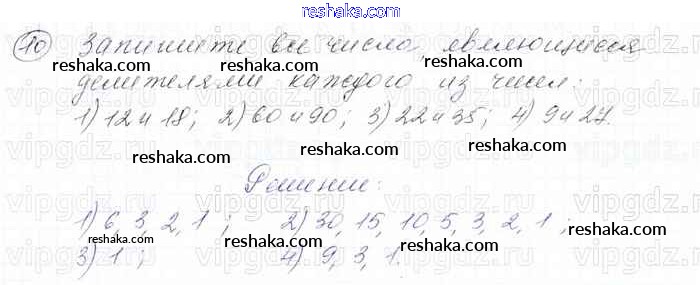 reshaka.com
10 Запишите все числа, являющиеся
reshaka.com reshaka.com reshaka.com
делителями каждого из чисел:
1) 12 и 18; 2) 60 и 90; 3) 22 и 35; 4) 9 и 27.
reshaka.com reshaka.com reshaka.com
Решение:
1) 6, 3, 2, 1; 2) 30, 15, 10, 5, 3, 2, 1;
reshaka.com reshaka.com reshaka.com
3) 1; 4) 9, 3, 1.
reshaka.com